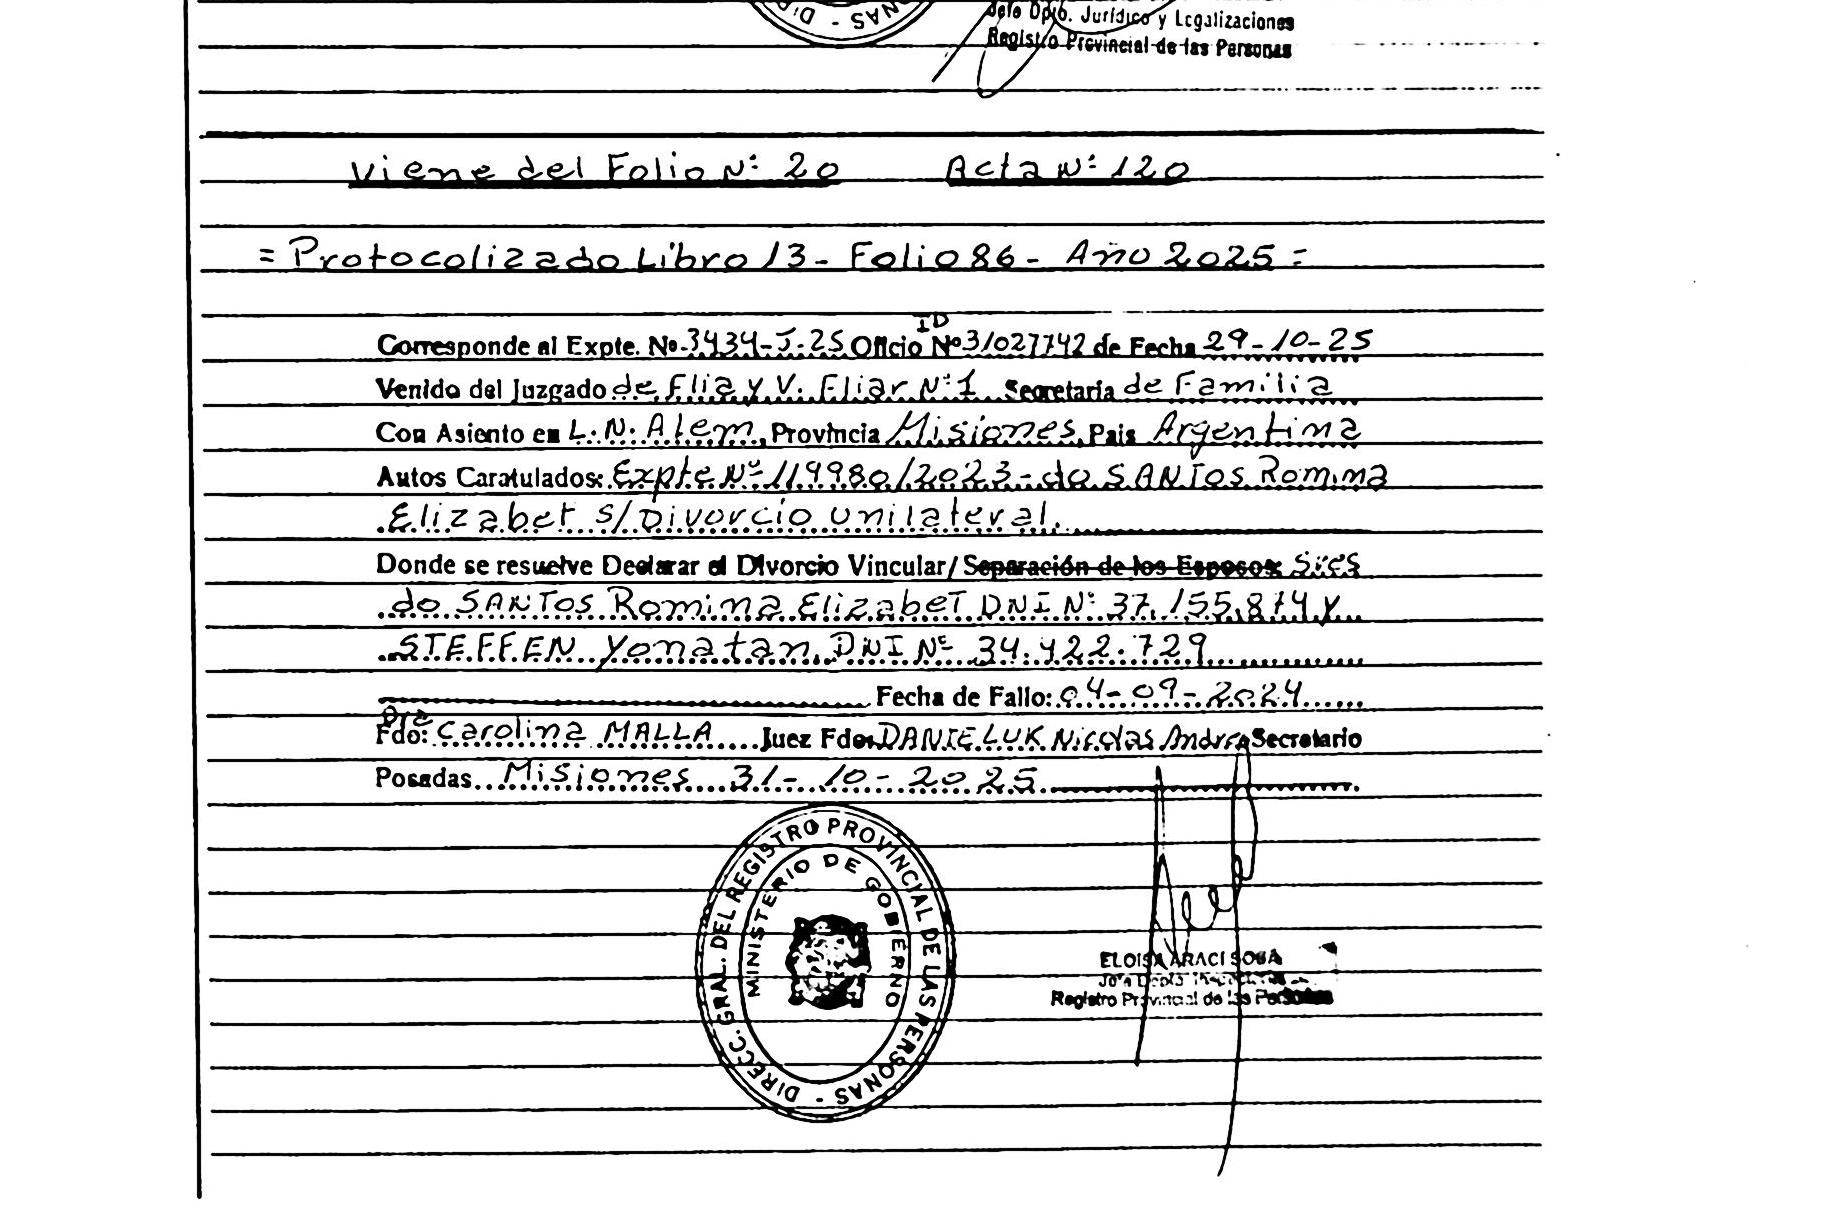 Jefe Dpto. Jurídico y Legalizaciones
Registro Provincial de las Personas
Viene del Folio Nº 20 Acta Nº 120
= Protocolizado Libro 13 - Folio 86 - Año 2025 =
ID
Corresponde al Expte. Nº 3434-J-25 Oficio Nº 31027742 de Fecha 29-10-25
Venido del Juzgado de Flia y V. Fliar Nº 1 Secretaria de Familia
Con Asiento en L. N. Alem, Provincia Misiones, Pais Argentina
Autos Caratulados: Expte Nº 119980/2023 - do SANTOS Romina
Elizabet s/Divorcio unilateral.
Donde se resuelve Declarar el Divorcio Vincular/Separación de los Esposos: Sres
do SANTOS Romina Elizabet DNI Nº 37.155.874 y
STEFFEN Yonatan DNI Nº 34.422.729
Fecha de Fallo: 04-09-2024
Dra
Fdo: Carolina MALLA Juez Fdo: DANIELUK Nicolas Andres Secretario
Posadas Misiones 31-10-2025
DIRECC. GRAL. DEL REGISTRO PROVINCIAL DE LAS PERSONAS -
MINISTERIO DE GOBIERNO
ELOISA ARACI SOSA
Registro Provincial de las Personas